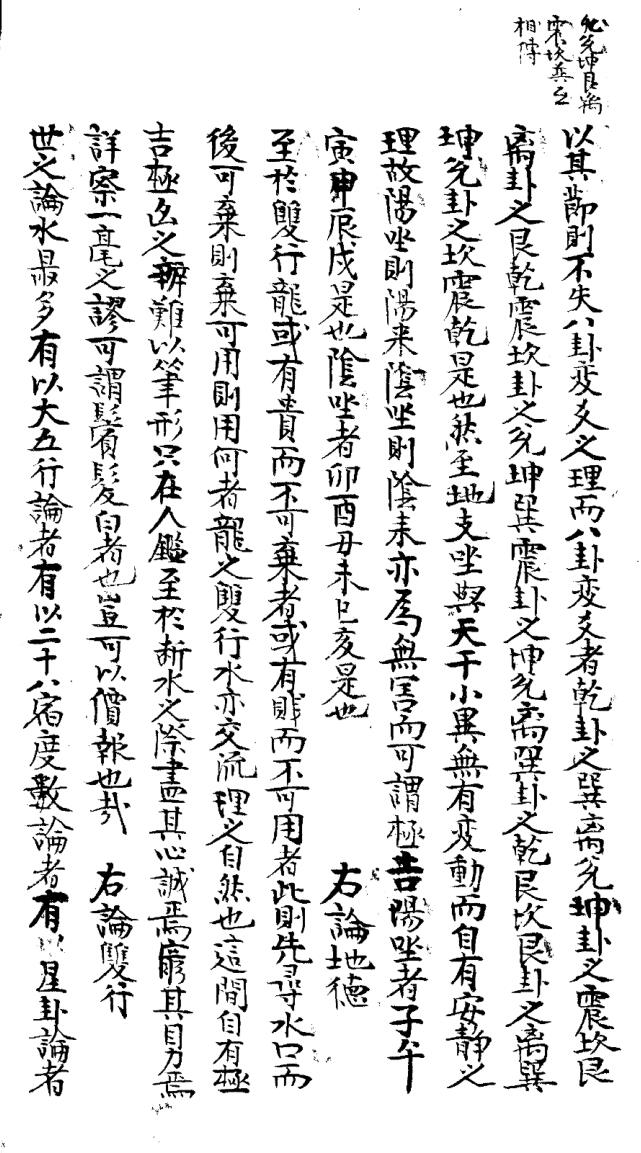 兌坤艮离
震坎巽之
相停
以其節則不失八卦变爻之理而八卦变爻者乾卦之巽离兌坤卦之震坎艮
离卦之艮乾震坎卦之兌坤巽震卦之坤兌离巽卦之乾艮坎艮卦之离巽
坤兌卦之坎震乾是也然至地支坐與天干小異無有变動而自有安静之
理故陽坐則陽来陰坐則陰来亦為無害而可謂極吉陽坐者子午
寅申辰戌是也陰坐者卯酉丑未巳亥是也 右論地德
至於雙行龍或有貴而不可棄者或有賎而不可用者此則先尋水口而
後可棄則棄可用則用何者龍之雙行水亦交流理之自然也這間自有極
吉極凶之辨難以筆形只在人鑑至於斷水之際盡其心誠焉窮其目力焉
詳察一毫之謬可謂鬂髮白者也豈可以償報也哉 右論雙行
世之論水最多有以大五行論者有以二十八宿度數論者有以星卦論者